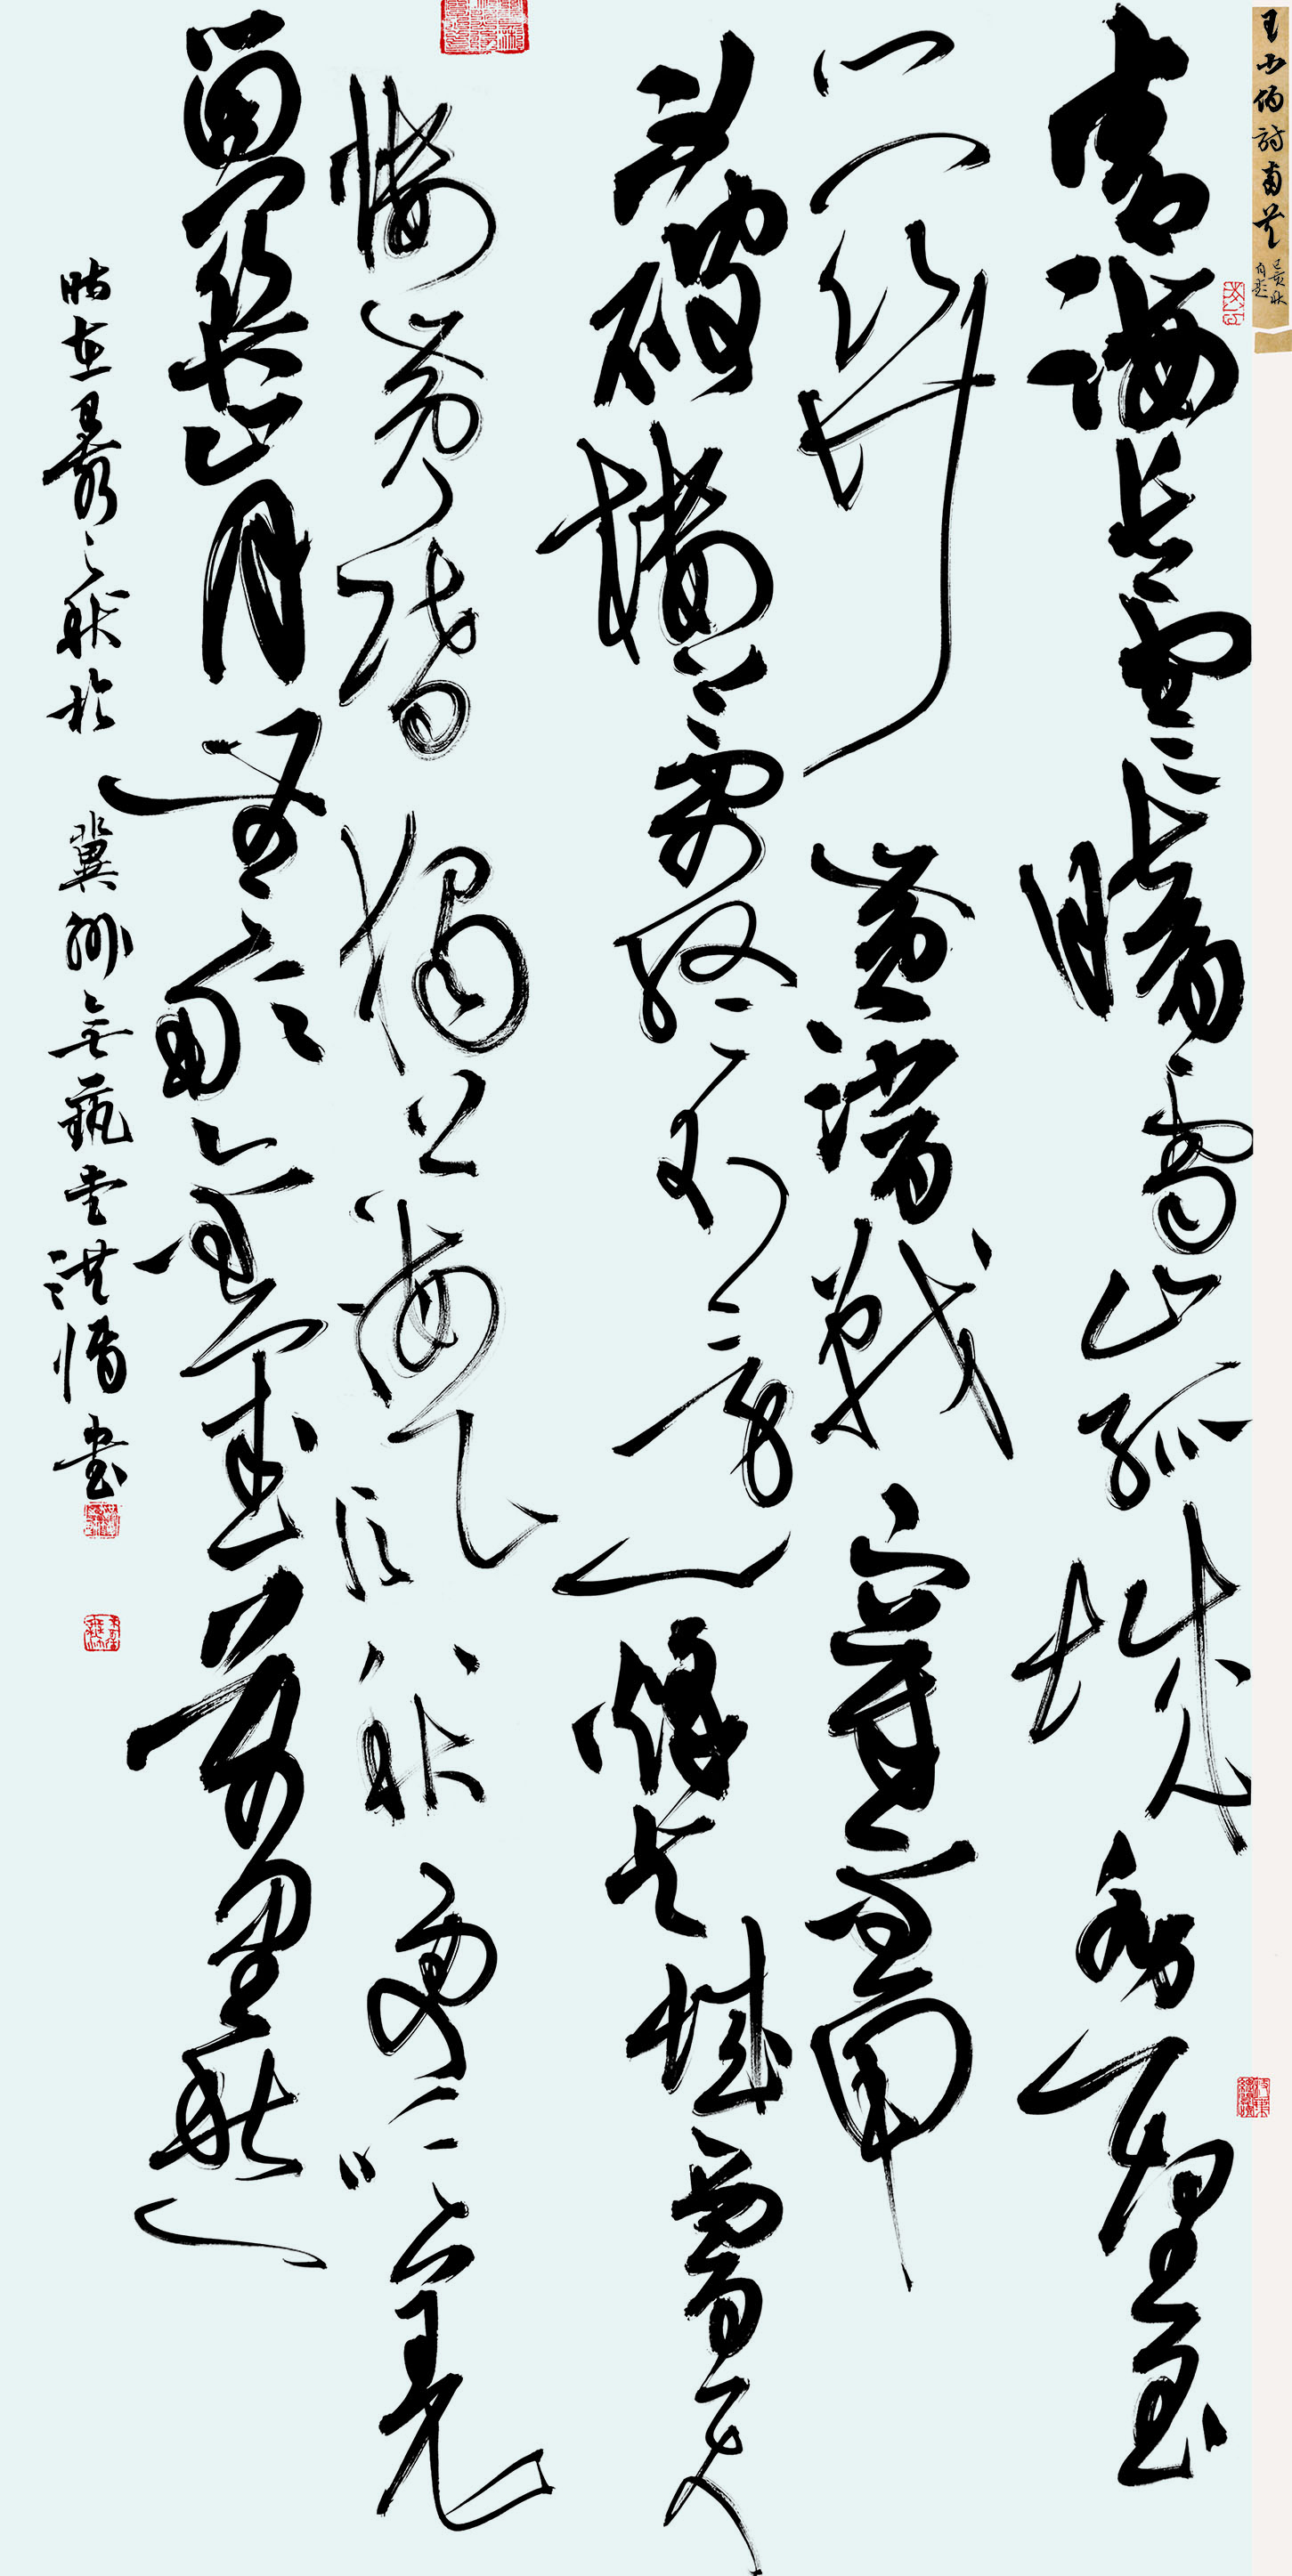 王少伯詩兩首
青海長雲暗雪山孤城遥望玉
門關黄沙百戰穿金甲
不破樓蘭終不還烽火城西百尺
樓黄昏獨上海風秋更吹羌
笛關山月無那金閨萬里愁
時在之秋於冀州堂洪書